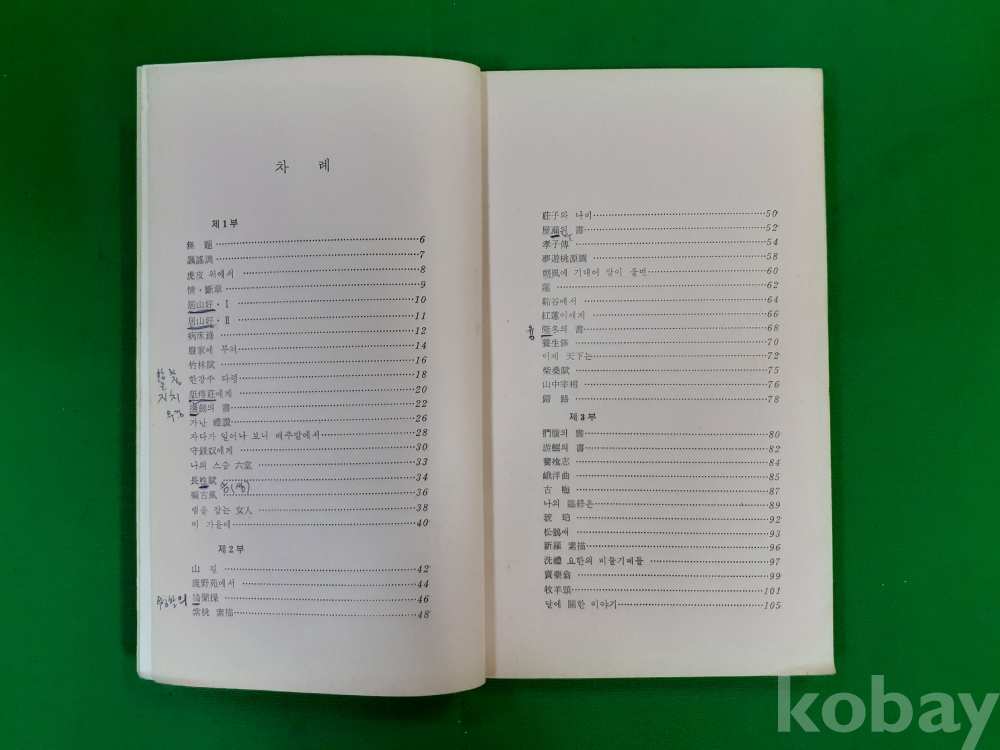 차 례
제1부
無 題 6
諷謠調 7
虎皮 위에서 8
情·斷章 9
居山好·Ⅰ 10
居山好·Ⅱ 11
病床錄 12
廢家에 부쳐 14
竹林賦 16
한강수 타령 18
지치
至痔莊에게 20
의 書 22
가난 禮讚 26
자다가 일어나 보니 배추밭에서 28
守錢奴에게 30
나의 스승 六堂 33
長 賦 34
擬古風 36
뱀을 잡는 女人 38
이 가을에 40
제2부
山 길 42
鹿野苑에서 44
猗蘭操 46
紫桃 素描 48
莊子와 나비 50
의 書 52
孝子傳 54
夢遊桃源圖 58
朔風에 기대어 말이 울면 60
龍 62
谿谷에서 64
紅蓮이에게 66
冬의 書 68
養生修 70
이제 天下는 72
柴桑賦 75
山中宰相 76
歸 路 78
제3부
捫腹의 書 80
의 書 82
饕 志 84
峨洋曲 85
古 梅 87
나의 臨終은 89
琥 珀 92
松鶴때 93
新羅 素描 96
洗禮 요한의 비둘기떼들 97
賣藥翁 99
牧羊頭 101
달에 關한 이야기 105
kobay